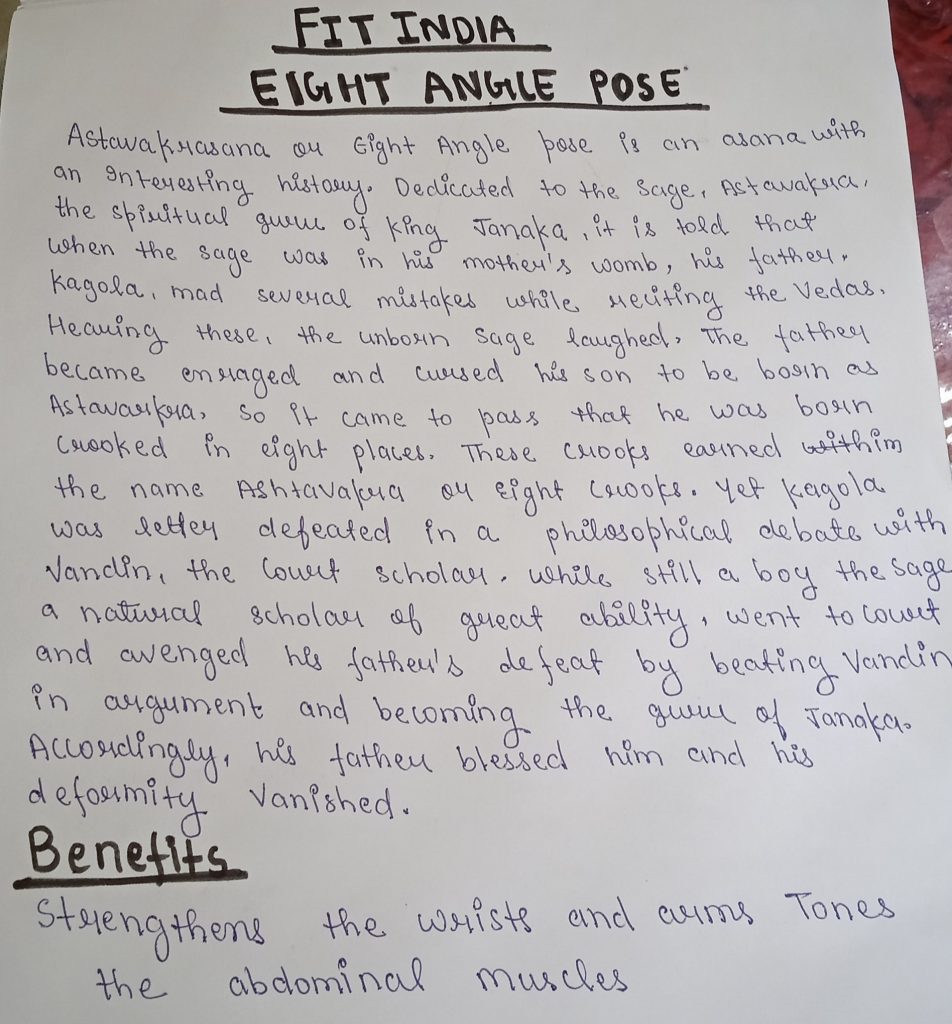 FIT INDIA
EIGHT ANGLE POSE
Astavakrasana or Eight Angle pose is an asana with
an Interesting history. Dedicated to the Sage, Astavakra,
the spiritual guru of King Janaka, it is told that
when the sage was in his mother's womb, his father,
Kagola, mad several mistakes while reciting the Vedas.
Hearing these, the unborn sage laughed. The father
became enraged and cursed his son to be born as
Astavarkra, so it came to pass that he was born
crooked in eight places. These crooks earned him
the name Ashtavakra or eight crooks. Yet Kagola
was letter defeated in a philosophical debate with
Vandin, the court scholar. While still a boy the sage
a natural scholar of great ability, went to court
and avenged his father's defeat by beating Vandin
in argument and becoming the guru of Janaka.
Accordingly, his father blessed him and his
deformity vanished.
Benefits
Strengthens the wrists and arms Tones
the abdominal muscles